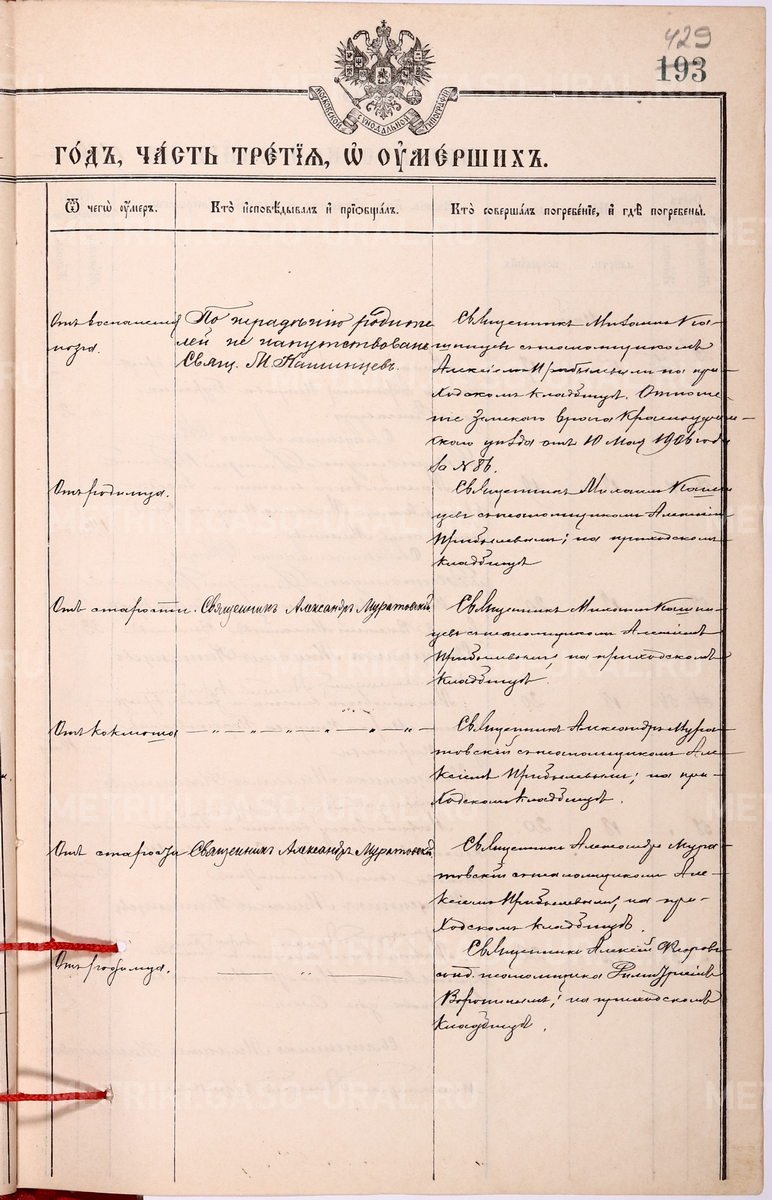 429
193
МОСКОВСКОЙ СѴНОДАЛЬНОЙ ТИПОГРАФІИ
ГО́ДЪ, ЧА́СТЬ ТРЕ́ТІѦ, Ѡ҆ ОУ҆МЕ́РШИХЪ.
Ѿ чегѡ̀ оу҆́меръ.
Кто̀ и҆сповѣ́дывалъ и҆ прїѡбща́лъ.
Кто̀ соверша́лъ погребе́нїе, и҆ гдѣ̀ погребены̀.
Отъ воспаленія
мозга.
По нерадѣнію родите
лей не напутствованъ
Свящ. М Кашинцевъ.
Священникъ Михаилъ Ка-
шинцевъ съ псаломщикомъ
Алексѣемъ Прибылевымъ на при
ходскомъ кладбищѣ. Отноше
ніе Земскаго врача Красноуфим-
скаго уѣзда отъ 10 Мая 1906 года
за № 86.
Отъ родимца.
Священникъ Михаилъ Кашин
цевъ съ псаломщикомъ Алексѣемъ
Прибылевымъ; на приходскомъ
кладбищѣ
Отъ старости.
Священникъ Александръ Муратовскій
Священникъ Михаилъ Кашин-
цевъ съ псаломщикомъ Алексѣемъ
Прибылевымъ; на приходскомъ
кладбищѣ.
Отъ коклюша
— „ — „ — „ — „ — „ — „ —
Священникъ Александръ Мура-
товскій съ псаломщикомъ Але-
ксѣемъ Прибылевымъ; на при-
ходскомъ кладбищѣ.
Отъ старости
Священникъ Александръ Муратовскій
Священникъ Александръ Мура-
товскій съ псаломщикомъ Але-
ксѣемъ Прибылевымъ; на при-
ходскомъ кладбищѣ.
Отъ родимца.
— „ —
Священникъ Алексѣй
псаломщика
Воронинымъ; на приходскомъ
кладбищѣ.
METRIKI.GASO-URAL.RU